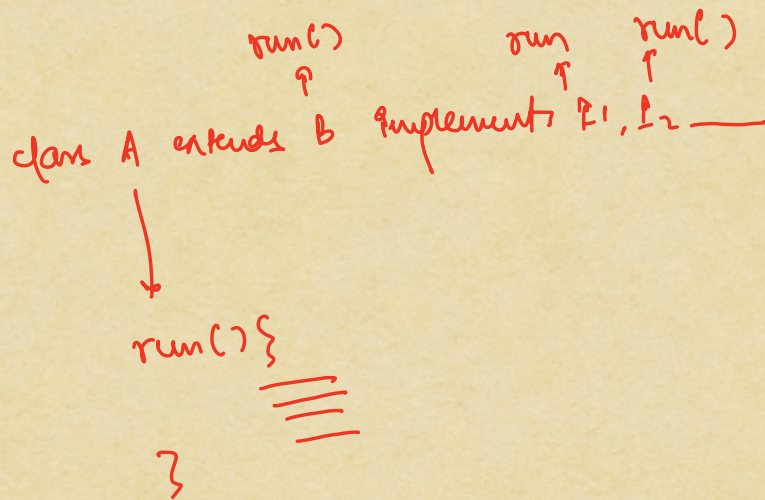 run() run run()
class A extends B implements I1, I2
run(){
}